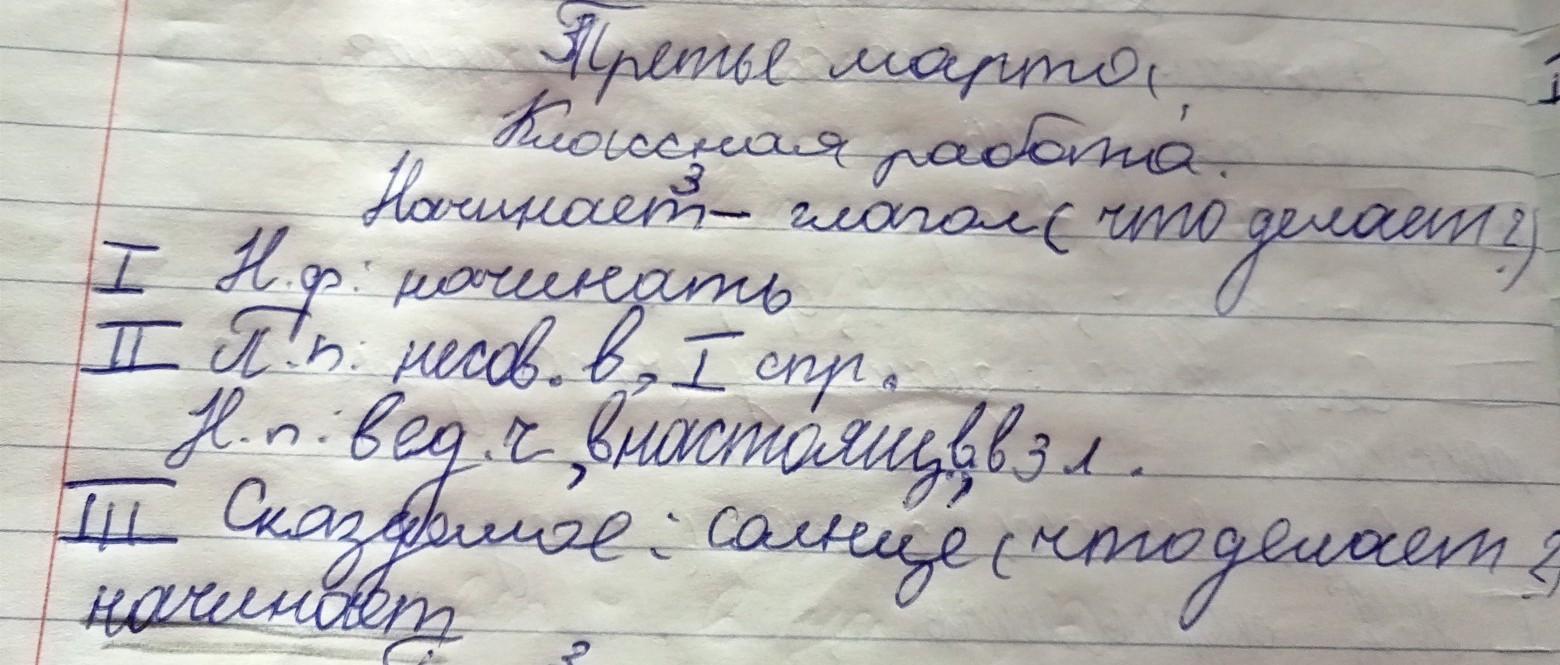 Третье марта,
Классная работа.
Начинает³ – глагол (что делает?)
I Н.ф: начинать
II П.п: несов. в, I спр.
Н.п: в ед. ч, в настоящ, в 3 л.
III Сказуемое: солнце (что делает?)
начинает